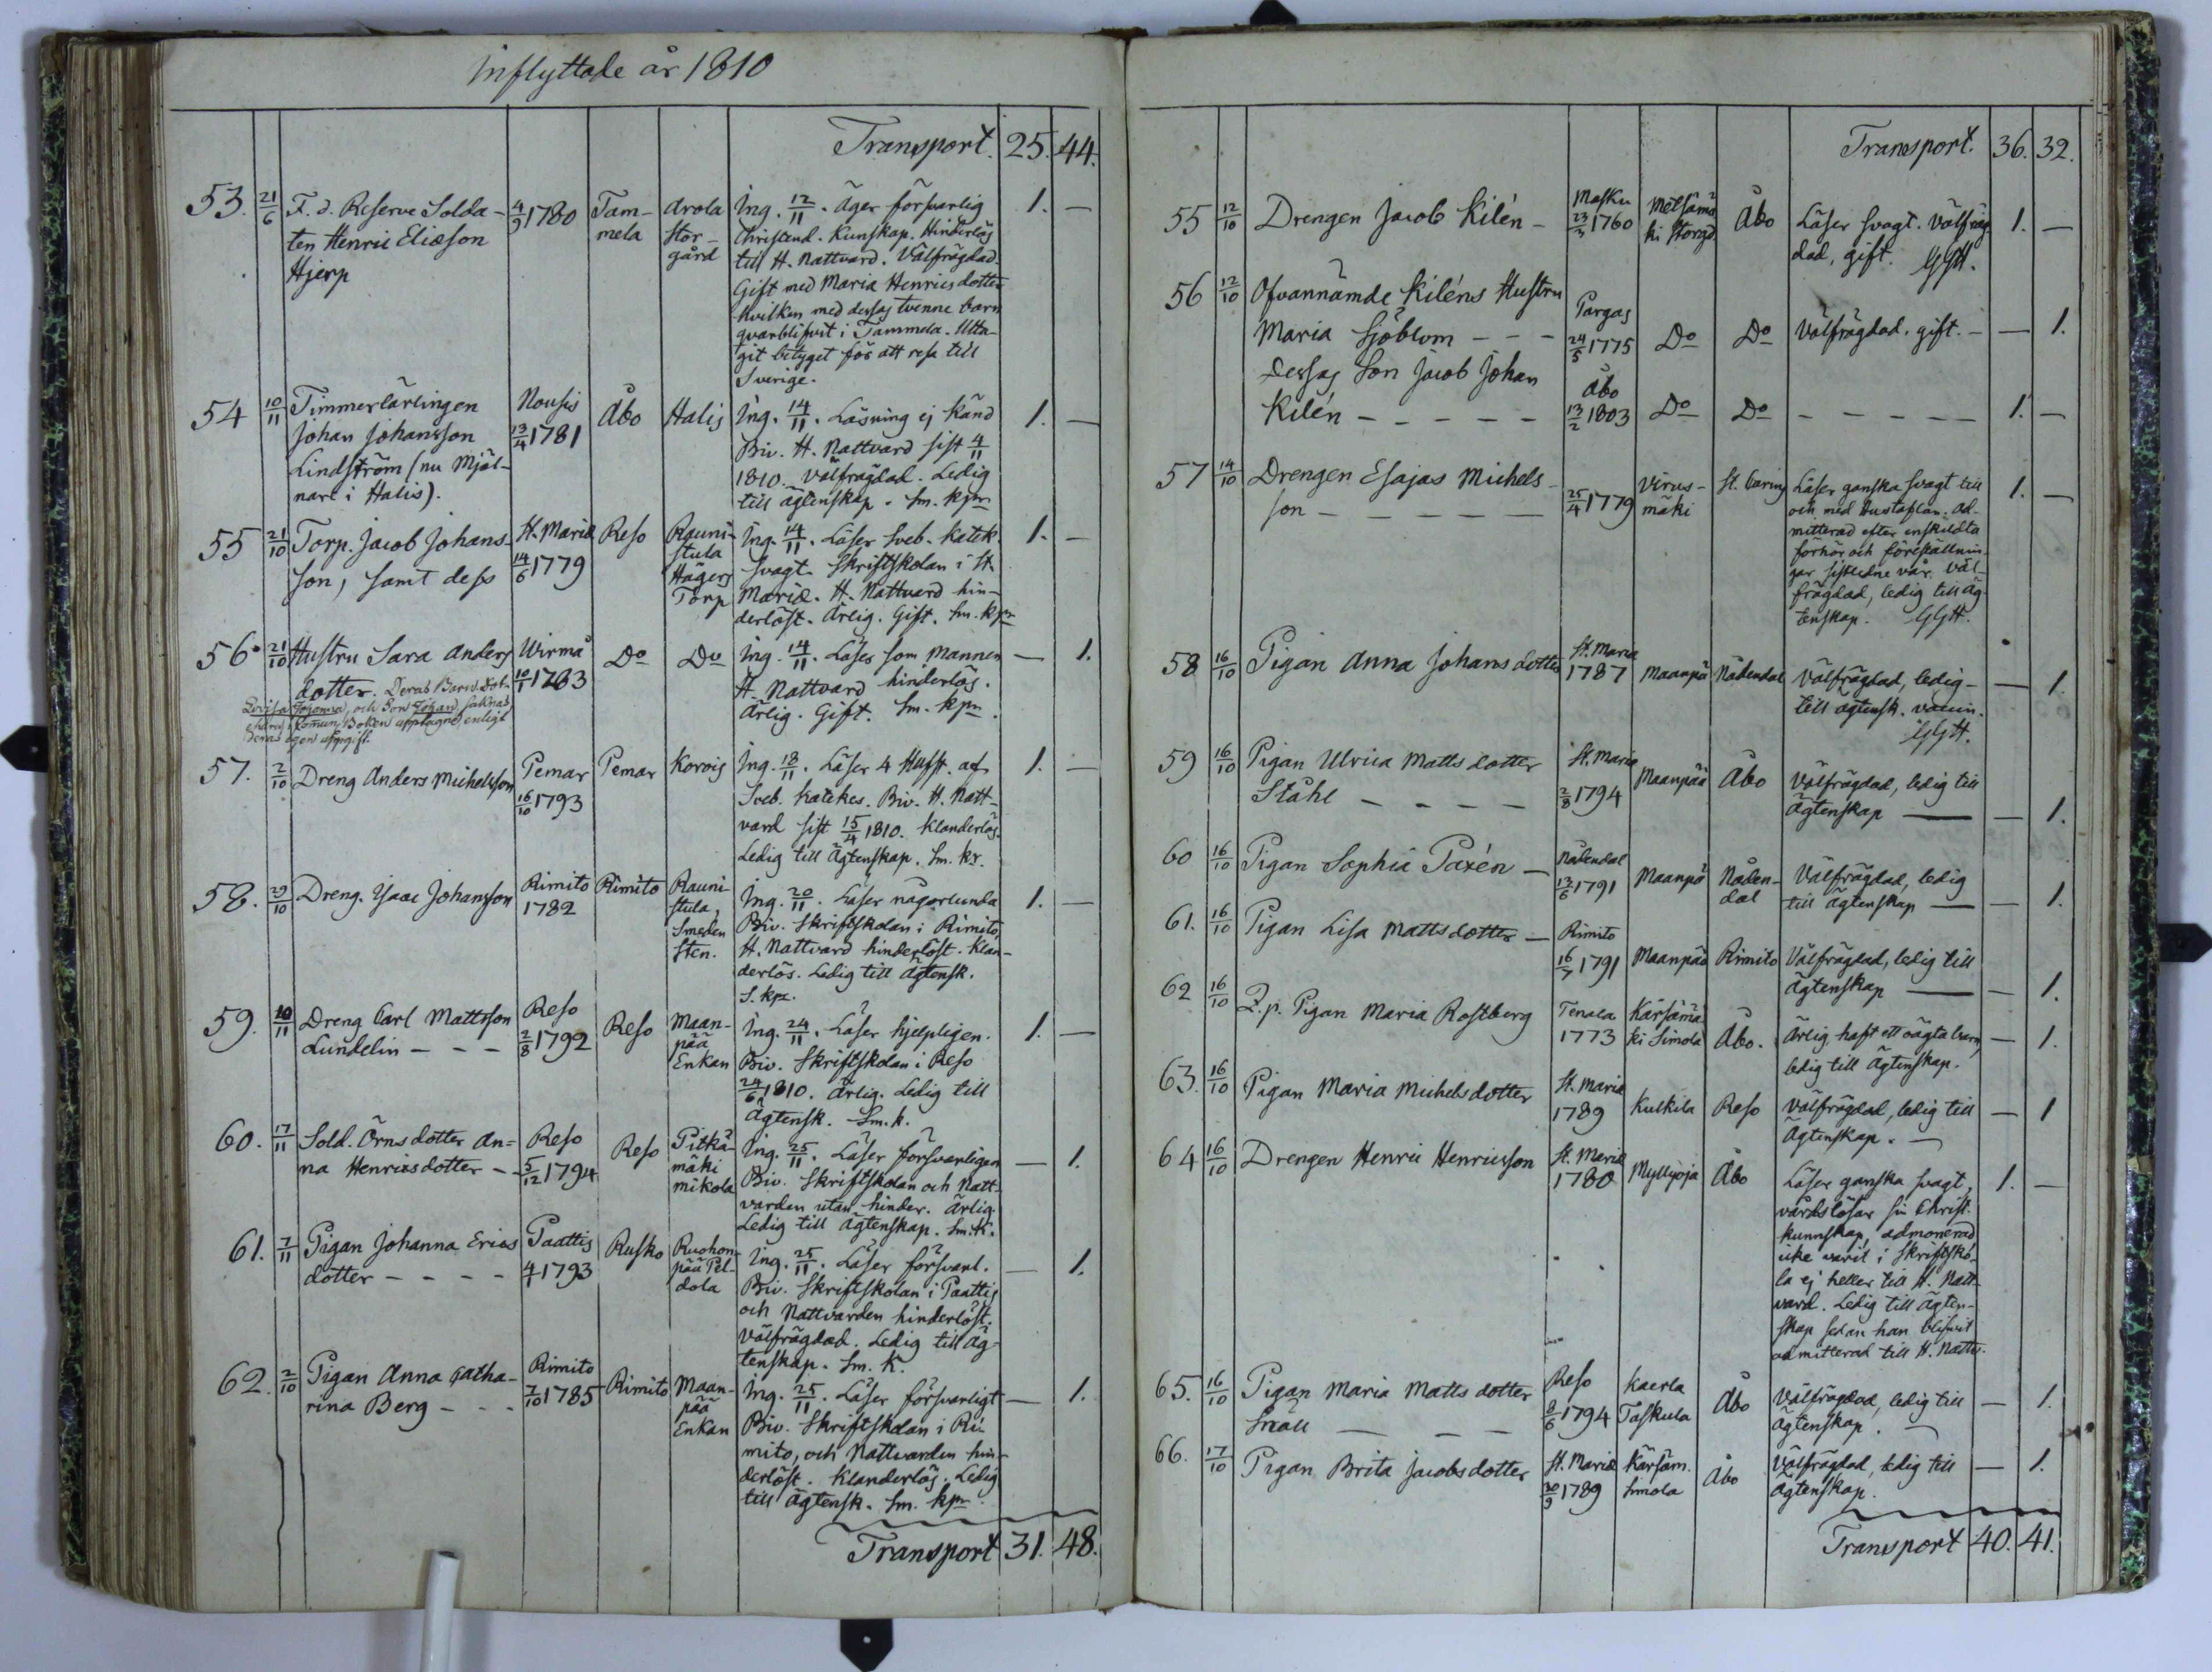 Inflyttade år 1810
Transport. 25. 44.
53. 21/6 F. d. Reserve Solda-
ten Henric Eliæson
Hjerp
4/9 1780
Tam-
mela
Arola
Stor-
gård
Ing. 12/11. Äger försvarlig
Christend. Kunskap. Hinderlös
till H. Nattvard. Välfrägdad.
Gift med Maria Henricsdotter
hvilken med dessas tvenne barn
qvarblifvit i Tammela. Utta-
git betyget för att resa till
Sverige.
1. —
54 10/11 Timmerlärlingen
Johan Johansson
Lindström (nu Mjöl-
nare i Halis).
Nousis
13/4 1781
Åbo
Halis
Ing. 14/11. Läsning ej känd
Biv. H. Nattvard sist 4/11
1810. Välfrägdad. Ledig
till Ägtenskap. Sm. kpn
1. —
55 21/10 Torp. Jacob Johans-
son, samt dess
St. Mariæ
14/6 1779
Reso
Rauni-
stula
Hägers
Torp
Ing. 14/11. Läser Sveb. Katek.
svagt. Skriftskolan i St.
Mariæ. H. Nattvard hin-
derlöst. Ärlig. Gift. Sm. kpn
1. —
56. 21/10 Hustru Sara Anders
dotter. Deras Barn Dot.
Lovisa Johanna, och Son Johan saknas
här i Comun. Boken upptagne enligt
deras egen uppgift.
Wirmå
10/1 1763
Do
Do
Ing. 14/11. Läser som Mannen
H. Nattvard hinderlös.
Ärlig. Gift. Sm. kpn.
— 1.
57. 2/10 Dreng Anders Michelsson
Pemar
16/10 1793
Pemar
Korois
Ing. 18/11. Läser 4 Hufst. af
Sveb. Katekes. Biv. H. Natt-
vard sist 15/4 1810. Klanderlös.
Ledig till Ägtenskap. Sm. kr.
1. —
58. 29/10 Dreng. Isaac Johansson
Rimito
1782
Rimito
Rauni-
stula,
Smeden
Sten.
Ing. 20/11. Läser någorlunda
Biv. Skriftskolan i Rimito,
H. Nattvard hinderlöst. Klan-
derlös. Ledig till Ägtensk.
S. kpr.
1. —
59. 10/11 Dreng Carl Mattsson
Lundelin - - -
Reso
2/8 1792
Reso
Maan-
pää
Enkan
Ing. 24/11. Läser hjelpligen.
Biv. Skriftskolan i Reso
24/6 1810. Ärlig. Ledig till
Ägtensk. Sm. k.
1. —
60. 17/11 Sold. Örns dotter An-
na Henricsdotter -
Reso
5/12 1794
Reso
Pitkä-
mäki
Mikola
Ing. 25/11. Läser försvarligen
Biv. Skriftskolan och Natt-
varden utan hinder. Ärlig.
Ledig till Ägtenskap. Sm. K.
— 1.
61. 7/11 Pigan Johanna Erics
dotter - - - -
Paattis
4/1 1793
Rusko
Ruohon-
pää Pel-
dola
Ing. 25/11. Läser försvarl.
Biv. Skriftskolan i Paattis
och Nattvarden hinderlöst.
Välfrägdad. Ledig till Äg-
tenskap. Sm. K.
— 1.
62. 2/10 Pigan Anna Catha-
rina Berg - - -
Rimito
7/10 1785
Rimito
Maan-
pää
Enkan
Ing. 25/11. Läser försvarligt
Biv. Skriftskolan i Ri-
mito, och Nattvarden hin-
derlöst. Klanderlös. Ledig
till Ägtensk. Sm. kpn.
— 1.
Transport 31. 48.
Transport. 36. 32.
55 12/10 Drengen Jacob Kilén -
Masku
23/3 1760
Metsämä
ki Storgd
Åbo
Läser svagt. Välfräg
dad, gift.
1. —
56 12/10 Ofvannämde Kiléns Hustru
Maria Sjöblom - - -
Pargas
24/5 1775
Do
Do
Välfrägdad. gift. -
— 1.
Dessas Son Jacob Johan
Kilén - - - - -
Åbo
13/2 1803
Do
Do
- - - - -
1. —
57 14/10 Drengen Esajas Michels-
son - - - - -
25/4 1779
Virus-
mäki
St. Carins
Läser ganska svagt till
och med Hustaflan. Ad-
mitterad efter enskildta
förhör och föreställnin-
gar sistledne vår. Väl-
frägdad, ledig till Äg-
tenskap.
1. —
58 16/10 Pigan Anna Johansdotter
St. Maria
1787
Maanpä
Nådendal
Välfrägdad, ledig
till Ägtensk.
— 1.
59 16/10 Pigan Ulrica Mattsdotter
Ståhl - - - -
St. Maria
2/8 1794
Maanpää
Åbo
Välfrägdad, ledig till
Ägtenskap —
— 1.
60 16/10 Pigan Sophia Paxén -
Nådendal
13/6 1791
Maanpä
Nåden-
dal
Välfrägdad, ledig
till Ägtenskap —
— 1.
61. 16/10 Pigan Lisa Mattsdotter -
Rimito
16/7 1791
Maanpää
Rimito
Välfrägdad, ledig till
Ägtenskap —
— 1.
62 16/10 Q. p. Pigan Maria Rostberg
Tenala
1773
Kärsämä
ki Simola
Åbo.
Ärlig, haft ett oägta barn,
ledig till Ägtenskap.
— 1.
63. 16/10 Pigan Maria Michelsdotter
St. Maria
1789
Kulkila
Reso
Välfrägdad, ledig till
Ägtenskap. —
— 1
64 16/10 Drengen Henric Henricsson
St. Mariæ
1780
Myllyoja
Åbo
Läser ganska svagt,
vårdslösar sin Christ.
kunnskap, admonerad
icke varit i Skriftsko-
la ej heller till H. Natt-
vard. Ledig till Ägten-
skap sedan han blifvit
admitterad till H. Nattv.
1. —
65. 16/10 Pigan Maria Mattsdotter
Småll - - -
Reso
8/6 1794
Kaerla
Taskula
Åbo
Välfrägdad, ledig till
Ägtenskap. —
— 1.
66. 17/10 Pigan Brita Jacobsdotter
St. Mariæ
30/9 1789
Kärsäm.
Simola
Åbo
Välfrägdad, ledig till
Ägtenskap.
— 1.
Transport 40. 41.